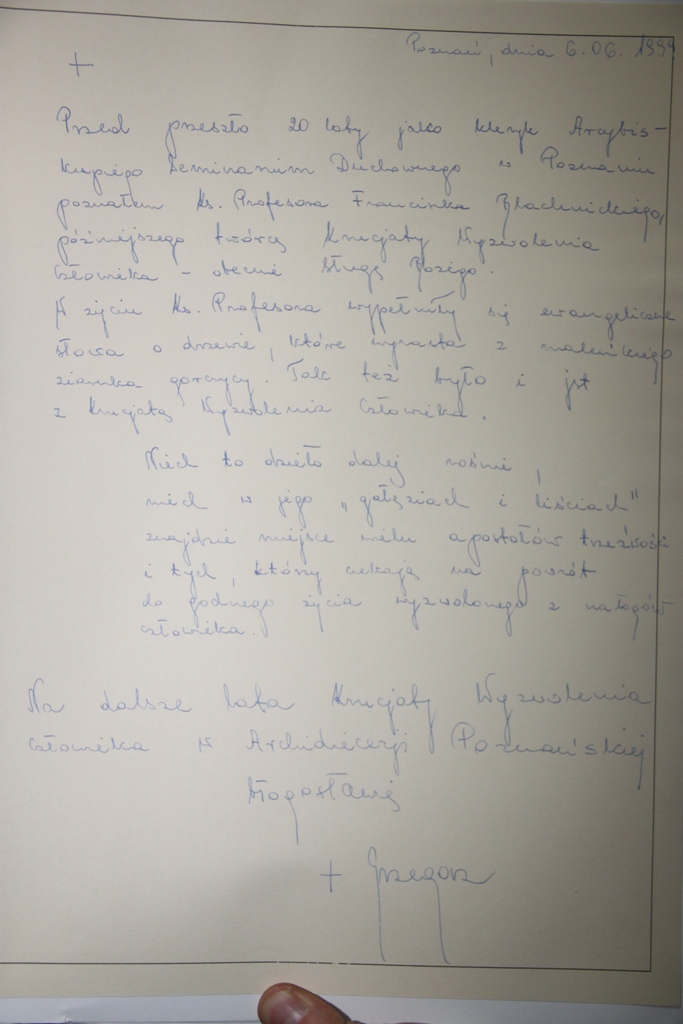 Poznań, dnia 6.06.1999
+
Przed przeszło 20 laty jako kleryk Arcybis-
kupiego Seminarium Duchownego w Poznaniu
poznałem Ks. Profesora Franciszka Blachnickiego,
późniejszego twórcę Krucjaty Wyzwolenia
Człowieka - obecnie Sługę Bożego.
W życiu Ks. Profesora wypełniły się ewangeliczne
słowa o drzewie, które wyrasta z maleńkiego
ziarnka gorczycy. Tak też było i jest
z Krucjatą Wyzwolenia Człowieka.
Niech to dzieło dalej rośnie,
niech w jego „gałęziach i liściach"
znajdzie miejsce wielu apostołów trzeźwości
i tych, którzy czekają na powrót
do godnego życia wyzwolonego z nałogów
człowieka.
Na dalsze lata Krucjaty Wyzwolenia
Człowieka w Archidiecezji Poznańskiej
błogosławię
+ Grzegorz